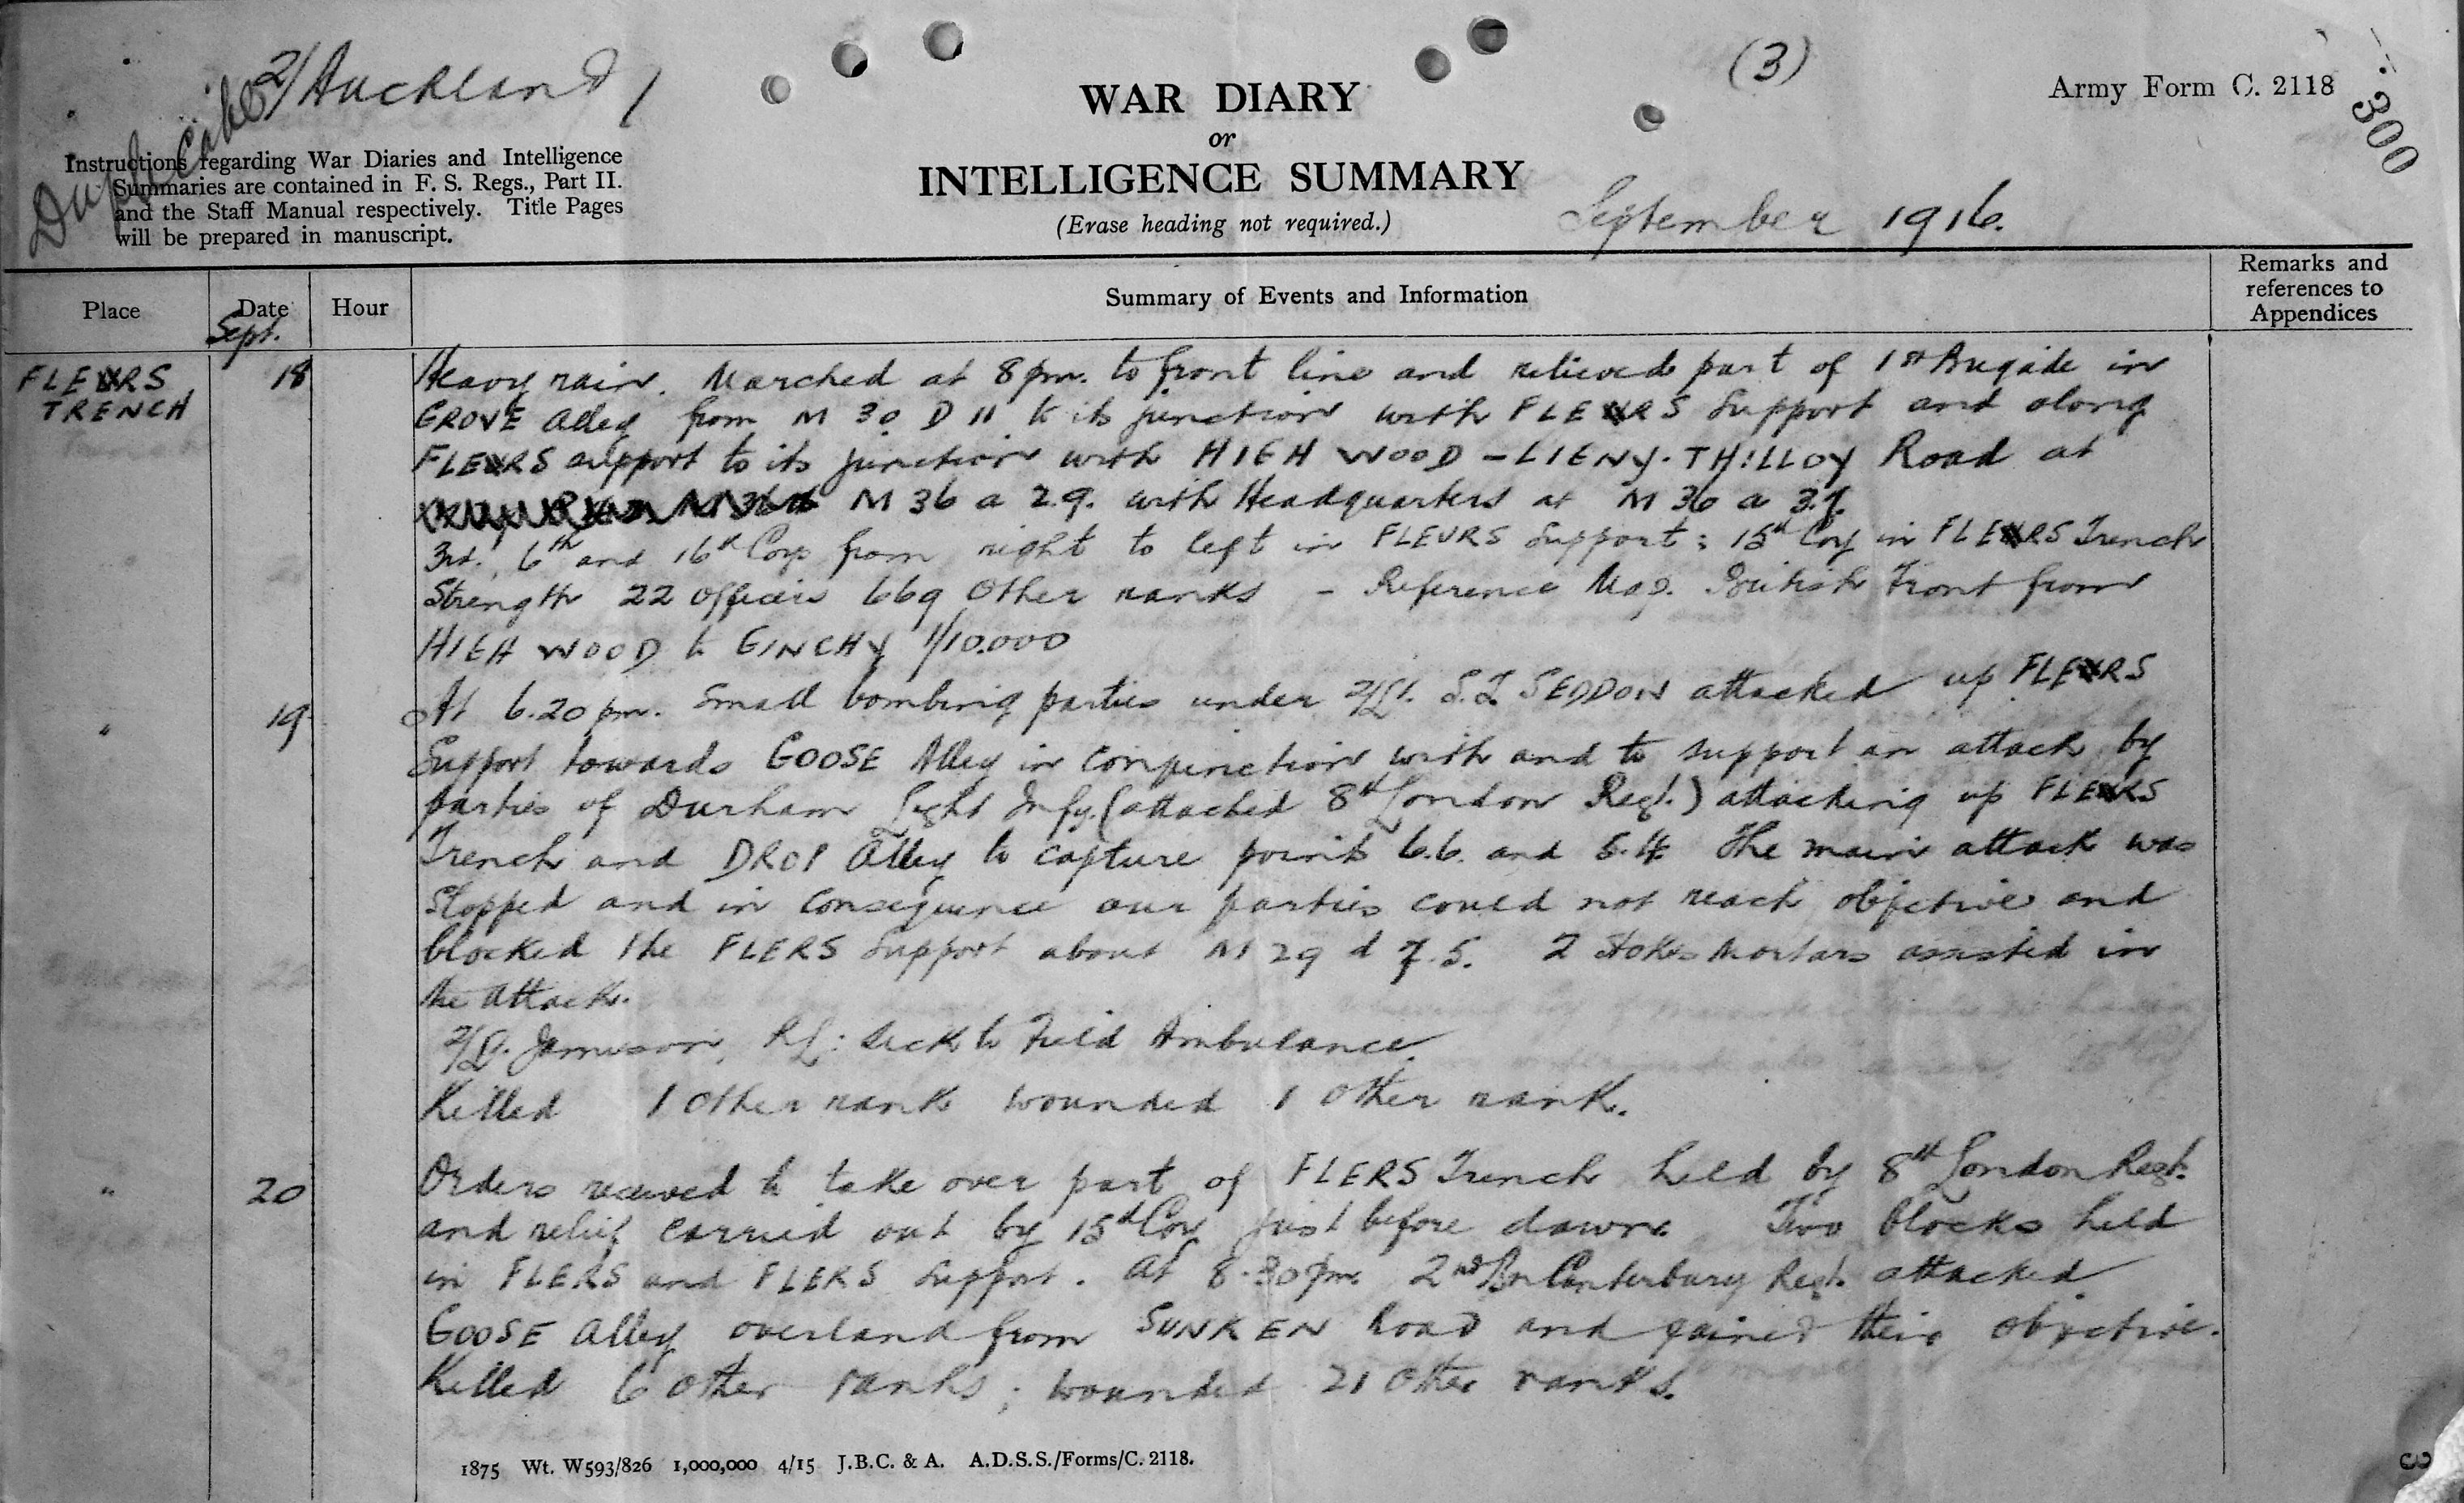 Duplicate 2/Auckland /
(3)
Army Form C. 2118
300
WAR DIARY
or
INTELLIGENCE SUMMARY
(Erase heading not required.)
September 1916.
Instructions regarding War Diaries and Intelligence
Summaries are contained in F. S. Regs., Part II.
and the Staff Manual respectively. Title Pages
will be prepared in manuscript.
Place Date Hour Summary of Events and Information Remarks and references to Appendices
Sept.
FLERS TRENCH 18 Heavy rain. Marched at 8 pm. to front line and relieved part of 1st Brigade in
GROVE Alley from M 30 D 11 to its junction with FLERS Support and along
FLERS support to its junction with HIGH WOOD - LIGNY-THILLOY Road at
M 36 a 2.9. with Headquarters at M 36 a 3.7.
3rd, 6th and 16th Coys from right to left in FLEURS Support; 15th Coy in FLERS Trench
Strength 22 Officers 669 Other ranks - Reference Map. British Front from
HIGH WOOD to GINCHY 1/10.000
" 19 At 6.20 pm. Small bombing parties under 2/Lt. S.T. SEDDON attacked up FLERS
Support towards GOOSE Alley in conjunction with and to support an attack by
parties of Durham Light Infy. (attached 8th London Regt.) attacking up FLERS
Trench and DROP Alley to capture points 6.6. and 5.4. The main attack was
stopped and in consequence our parties could not reach objective and
blocked the FLERS Support about M 29 d 7.5. 2 Stokes Mortars assisted in
the attack.
2/Lt. Jamieson, R.L: Sick to Field Ambulance.
Killed 1 Other rank wounded 1 other rank.
" 20 Orders received to take over part of FLERS Trench held by 8th London Regt.
and relief carried out by 15th Coy just before dawn. Two blocks held
in FLERS and FLERS Support. At 8.30 pm. 2nd Bn Canterbury Regt. attacked
GOOSE Alley overland from SUNKEN Road and gained their objective.
Killed 6 other ranks; wounded 21 Other ranks.
1875 Wt. W593/826 1,000,000 4/15 J.B.C. & A. A.D.S.S./Forms/C. 2118.
3